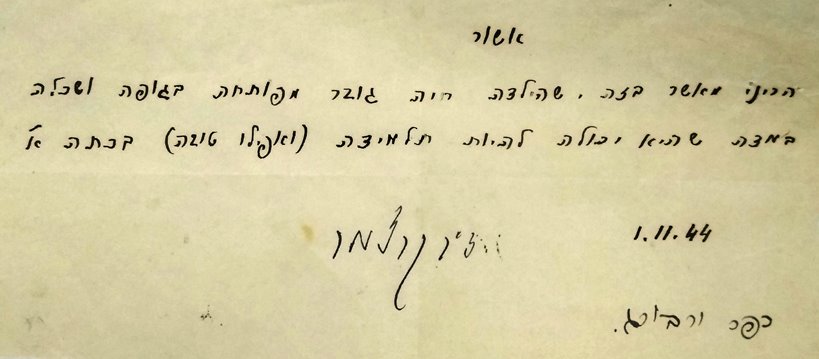 אשור
הריני מאשר בזה, שהילדה חיה גובר מפותחת בגופה ושכלה
במדה שהיא יכולה להיות תלמידה (ואפילו טובה) בכתה א'
1.11.44
כפר ורבורג.